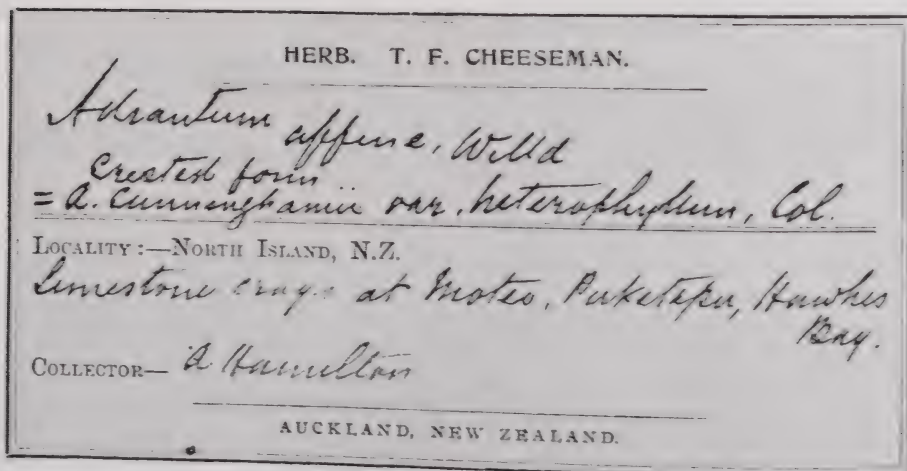 HERB. T. F. CHEESEMAN.
Adiantum affine, Willd
Crested form
= A. Cunninghamii var. heterophyllum, Col.
LOCALITY:—NORTH ISLAND, N.Z.
Limestone crags at Moteo, Puketapu, Hawkes
Bay.
COLLECTOR— A Hamilton
AUCKLAND, NEW ZEALAND.